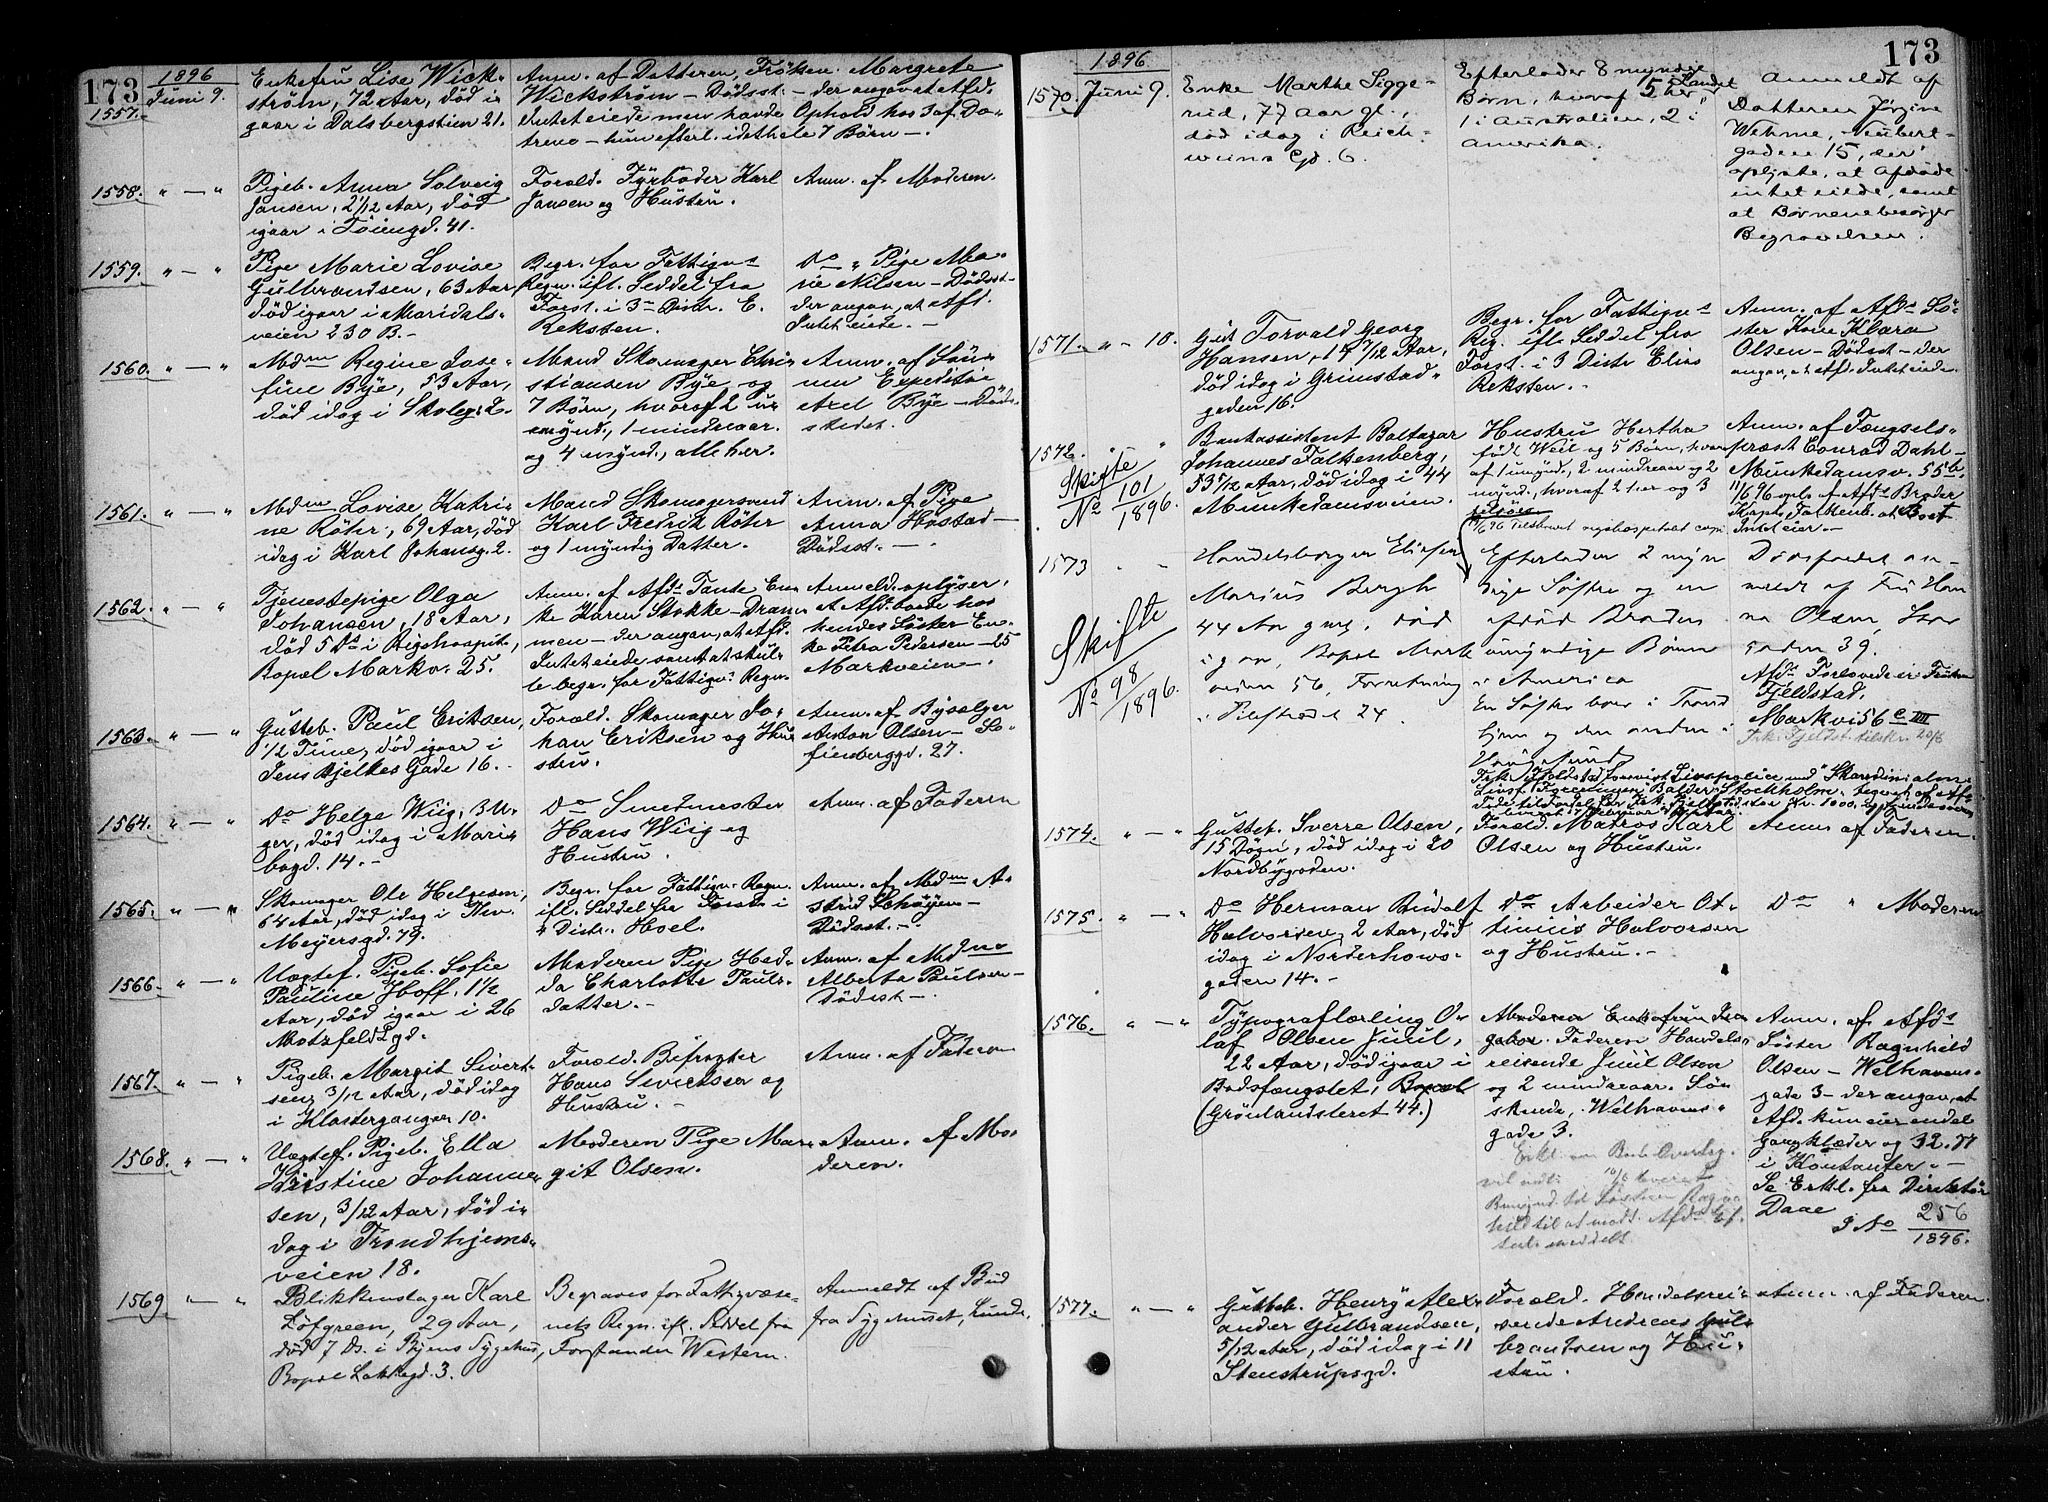 173
1896
Juni 9.
1557.
Enkefru Lise Wick-
strøm, 72 Aar, død i
gaar i Dalsbergstien 21.
Anm. af Datteren, Frøken Margrete
Wickstrøm – Dødsst. – der angav at Afd.
Intet eiede men havde Ophold hos 3 af Dø-
trene – hun efterl. idethele 7 Børn –.
1558. " — "
Pigeb. Anna Solveig
Jansen, 2 1/12 Aar, død
igaar i Tøiengd. 41.
Forald. Fyrbøder Karl
Jansen og Hustru.
Anm. af Moderen.
1559. " — "
Pige Marie Lovise
Gulbrandsen, 63 Aar,
død igaar i Maridals-
veien 230 B. –
Begr. for Fattigv.s
Regn. ifl. Seddel fra
Forst. i 3die Distr. E.
Reksten.
Do " Pige Ma-
rie Nilsen – Dødsst –
der angav, at Afd.
Intet eiede. –
1560. " — "
Mdm Regine Jose-
fine Bye, 53 Aar,
død idag i Skoleg. 2.
Mand Skomager Chri
stiansen Bye og
7 Børn, hvoraf 2 u-
mynd., 1 mindreaar.
og 4 mynd., alle her.
Anm. af Søn-
nen Expeditør
Axel Bye – Døds-
stedet.
1561. " — "
Mdme Lovise Katri-
ne Röhr, 69 Aar, død
idag i Karl Johansg. 2.
Mand Skomagersvend
Karl Fredrik Röhr
og 1 myndig Datter.
Anm. af Pige
Anna Hostad –
Dødsst. –
1562. " — "
Tjenestepige Olga
Johansen, 18 Aar,
død 5 Ds i Rigshospit.,
Bopæl Markv. 25.
Anm. af Afds Tante En-
ke Karen Stokke – Dram-
men – der angav, at Afd.
Intet eiede samt at skul-
le begr. for Fattigv.s Regn.
Anmeld. oplyser,
at Afd. boede hos
hendes Søster En-
ke Petra Pedersen – 25
Markveien –.
1563. " — "
Gutteb. Paul Eriksen,
1/2 Time, død igaar i
Jens Bjelkes Gade 16.
Forald. Skomager Jo-
han Eriksen og Hu-
stru.
Anm. af Bysælger
Anton Olsen – So-
fienberggd. 27.
1564. " — "
Do Helge Wiig, 3 U-
ger, død idag i Mari-
bogd. 14. –
Do Smedmester
Hans Wiig og
Hustru.
Anm. af Faderen
1565. " — "
Skomager Ole Helgesen,
64 Aar, død idag i Thv.
Meyersgd. 79.
Begr. for Fattigv. Regn.
ifl. Seddel fra Forst. i
" Distr. Hoel.
Anm. af Mdm A-
strid Schøyen –
Dødsst. –.
1566. " — "
Uægtef. Pigeb. Sofie
Pauline Hoff, 1 1/2
Aar, død igaar i 26
Motzfeldtgd.
Moderen Pige Hed-
da Charlotte Pauls-
datter. –
Anm. af Mdme
Alberta Paulsen –
Dødsst –.
1567. " — "
Pigeb. Margit Sivert-
sen, 3/12 Aar, død idag
i Klostergangen 10.
Forald. Bifragter
Hans Sivertsen og
Hustru. –
Anm. af Faderen
1568. " — "
Uægtef. Pigeb. Ella
Kristine Johanne-
sen, 3/12 Aar, død i-
dag i Trondhjems-
veien 18.
Moderen Pige Mar-
git Olsen.
Anm. af Mo-
deren.
1569 " — "
Blikkenslager Karl
Löfgreen, 29 Aar,
død 7 Ds. i Byens Sygehus,
Bopæl Lakkegd. 3.
Begraves for Fattigvæse-
nets Regn. ifl. Seddel fra
Forstander Western.
Anmeldt af Bud
fra Sygehuset, Lund.
173
1896
1570. Juni 9.
Enke Marthe Sigge-
rud, 77 Aar gl.,
død idag i Reich-
weins Gd. 6.
Efterlader 8 myndige
Børn, hvoraf 5 her i Landet
1 i Australien, 2 i
Amerika.
Anmeldt af
Datteren Jørgine
Wehme, Neubert-
gaden 15, der
oplyste, at Afdøde
intet eiede, samt
at Børnene besørger
Begravelsen.
1571. " – 10.
Gut Torvald Georg
Hansen, 14 7/12 Aar,
død idag i Grimstad-
gaden 16.
Begr. for Fattigv.s
Reg. ifl. Seddel fra
Forst. i 3 Distr Elias
Reksten. –
Anm. af Afds Sø-
ster Kone Klara
Olsen – Dødsst – der
angav, at Afd. Intet eiede.
1572. "
Skifte
No 101/1896.
Bankassistent Baltazar
Johannes Falkenberg,
53 5/12 Aar, død idag i 44
Munkedamsveien.
Hustru Hertha
født Weil og 5 Børn, hvor
af 1 umynd., 2 mindreaar og 2
mynd., hvoraf 2 her og 3
Anm. af Fængsels-
præst Conrad Dahl –
Munkedamsv. 55b.
11/6 96 opl. af Afds Broder
Kapt. Falkenb. at Boet
Intet eier. –
1573 " "
Skifte
No 98/1896.
Handelsborger Eliesen
Marius Bergh
44 Aar gml, død
igaar, Bopæl Mark
veien 56, Forretning
i Pilestrædet 24.
Efterlader 2 myn
dige Søstre og en
afdød Broders
umyndige Børn
i America
En Søster boer i Trond
hjem og den anden i
Dødsfaldet an-
meldt af Fru Han
na Olsen, Stor
gaden 39.
Afds Forlovede er Frøken
Fjeldstad,
Markv. 56 c III
Frk. Fjeldst. tilskr. 20/6
1574. " — "
Gutteb. Sverre Olsen,
15 Døgn, død idag i 20
Nordbygaden.
Forald. Matros Karl
Olsen og Hustru.
Anm. af Faderen.
1575. " — "
Do Herman Rudolf
Halvorsen, 2 Aar, død
idag i Norderhovs-
gaden 14. –
Do Arbeider Ot-
tinius Halvorsen
og Hustru. –
Do " Moderen
1576. " — "
Typograflærling O-
laf Olsen Juul,
22 Aar, død igaar i
Bodsfængslet, Bopæl
(Grønlandsleret 44.)
gebor. Faderen Handels-
reisende Juul Olsen
og 2 mindreaar. Sø-
skende, Welhavens-
gade 3.
Anm. af Afds
Søster Ragnhild
Olsen – Welhavens-
gade 3 – der angav, at
Afd. kun eier endel
Gangklæder og 32.77
i Kontanter. –
Se Erkl. fra Direktør
Daae
J No 256/1896.
1577. " — "
Gutteb. Henry Alex-
ander Gulbrandsen,
5/12 Aar, død idag i 11
Stenstrupsgd.
Forald. Handelsrei-
sende Andreas Gul-
brandsen og Hu-
stru.
Anm. af Faderen.